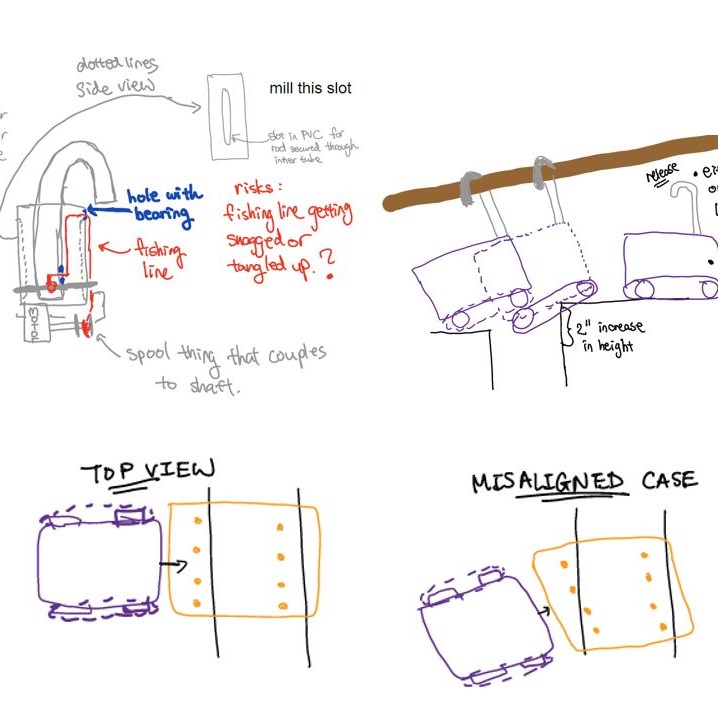 dotted lines
side view
mill this slot
slot in PVC for
rod secured through
inner tube
hole with
bearing
fishing
line
risks:
fishing line getting
snagged or
tangled up.?
motor
spool thing that couples
to shaft.
release
2" increase
in height
TOP VIEW
MISALIGNED CASE